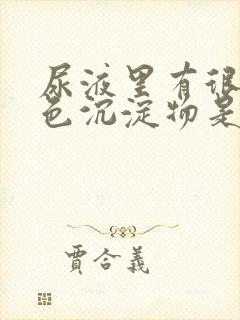 尿液里有很
色沉淀物是
賈合義